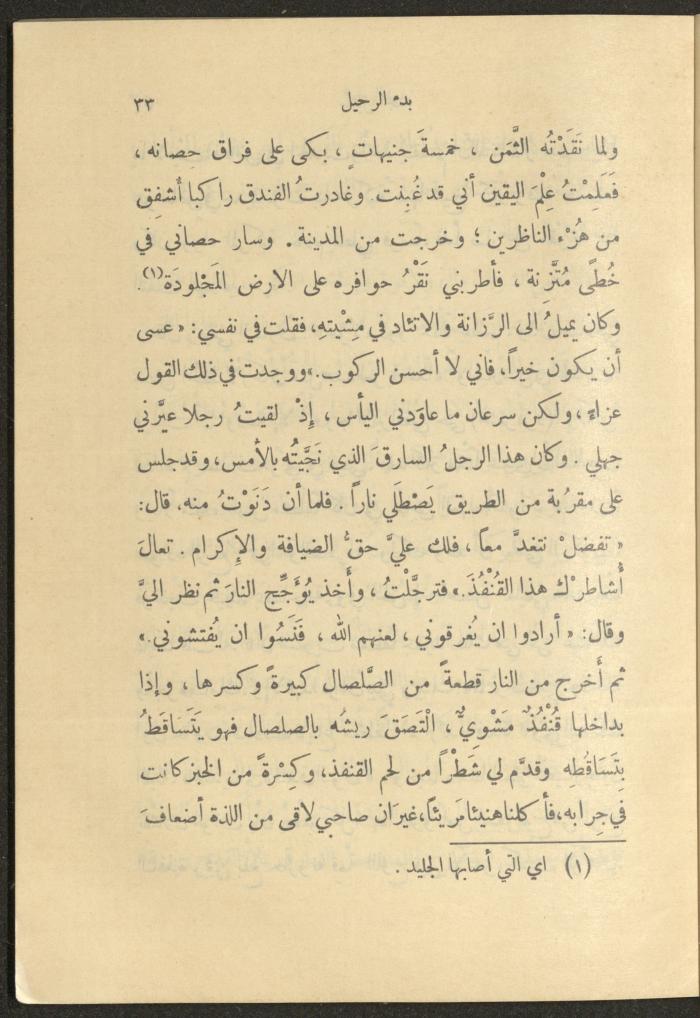 بدء الرحيل ٣٣
ولما نَقَدْتُه الثَّمَن ، خمسةَ جنيهاتٍ ، بكى على فراق حِصانه ،
فَعَلِمْتُ عِلْمَ اليقين أني قد غُبِنت وغادرتُ الفندق راكبا أُشفِق
من هُزْء الناظرين ؛ وخرجت من المدينة . وسار حصاني في
خُطًى مُتَّزِنة ، فأطربني نَقْرُ حوافره على الارض المَجْلودَة(١).
وكان يميلُ الى الرَّزانة والاتئاد في مِشْيتهِ، فقلت في نفسي: « عسى
أن يكون خيراً، فاني لا أحسن الركوب.» ووجدت في ذلك القول
عزاءً ، ولكن سرعان ما عاوَدني اليأس ، إِذْ لقيتُ رجلا عيَّرني
جهلي . وكان هذا الرجلُ السارقَ الذي نَجَّيتُه بالأمس، وقد جلس
على مقرُبة من الطريق يَصْطَلي ناراً . فلما أن دَنَوْتُ منه، قال:
« تفضلْ نتغدَّ معاً ، فلك عليَّ حقُّ الضيافة والإِكرام . تعالَ
أُشاطرْك هذا القُنْفُذَ.» فترجَّلْتُ ، وأَخذ يُؤَجِّج النارَ ثم نظر اليَّ
وقال: « أرادوا ان يُغرقوني ، لعنهم الله ، فَنَسُوا ان يُفتشوني.»
ثم أَخرج من النار قطعةً من الصَّلصال كبيرةً وكسرها ، وإذا
بداخلها قُنْفُذٌ مَشْوِيٌّ ، الْتَصَقَ ريشُه بالصلصال فهو يَتَسَاقَطُ
بِتَسَاقُطِه وقدَّم لي شَطْراً من لحم القنفذ، وكِسْرةً من الخبز كانت
في جِرابه، فأكلنا هنيئا مَريئاً، غيرَ ان صاحبي لاقى من اللذة أضعافَ
(١) اي التي أصابها الجليد .